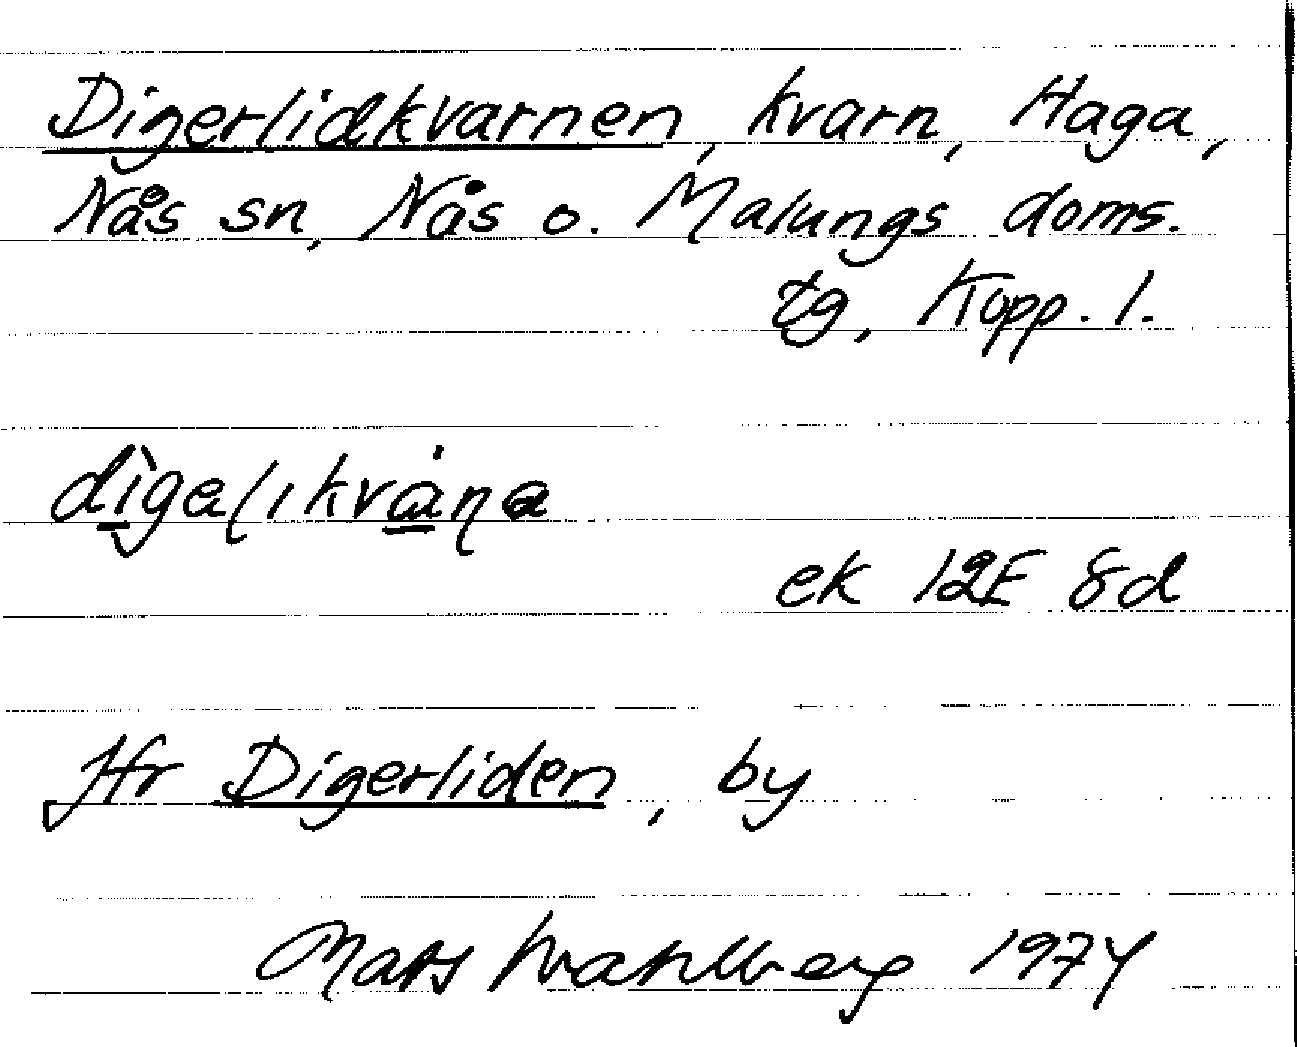 Digerlidkvarnen, kvarn, Haga,
Nås sn, Nås o. Malungs doms.
tg, Kopp. l.
ek 12E 8d
Jfr Digerliden, by
Mats Wahlberg 1974